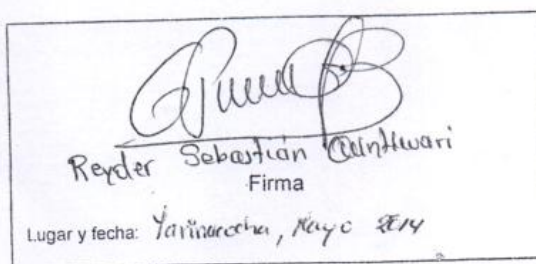 Reyder Sebastián Quinticuari
Firma
Lugar y fecha: Yarinacocha, Mayo 2014